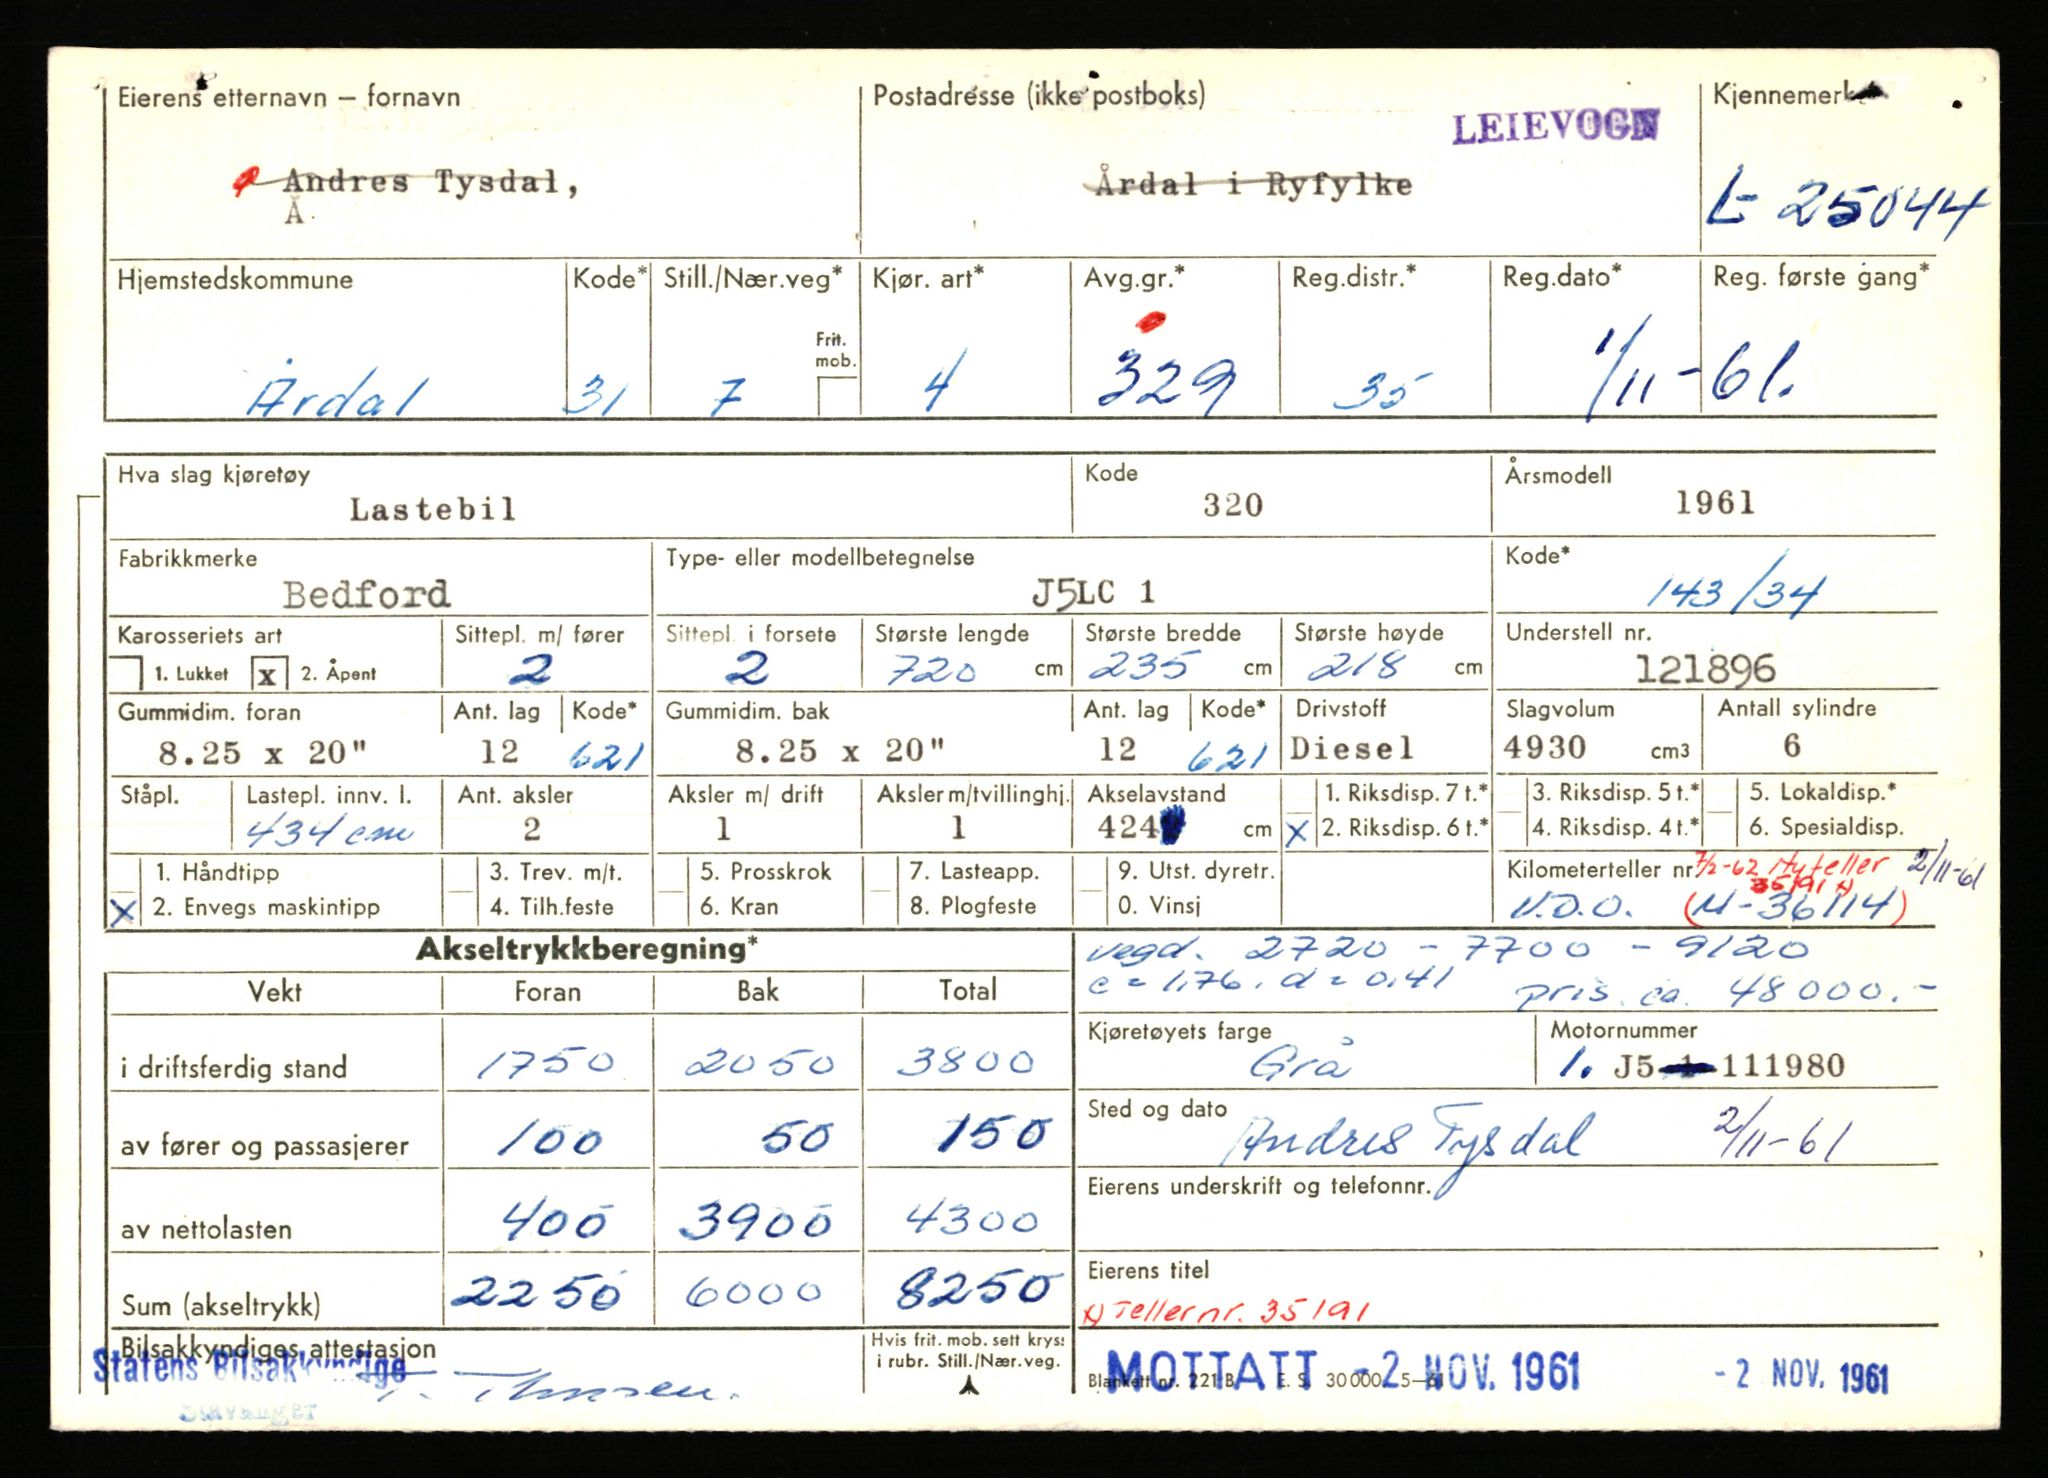 Eierens etternavn – fornavn
Postadresse (ikke postboks)
LEIEVOGN
Kjennemerke
Andres Tysdal,
Å
Årdal i Ryfylke
L-25044
Hjemstedskommune Kode* Still./Nær.veg* Kjør. art* Avg.gr.* Reg.distr.* Reg.dato* Reg. første gang*
Frit. mob.
Årdal 31 7 4 329 35 1/11-61.
Hva slag kjøretøy Kode Årsmodell
Lastebil 320 1961
Fabrikkmerke Type- eller modellbetegnelse Kode*
Bedford J5LC 1 143/34
Karosseriets art Sittepl. m/ fører Sittepl. i forsete Største lengde Største bredde Største høyde Understell nr.
1. Lukket x 2. Åpent 2 2 720 cm 235 cm 218 cm 121896
Gummidim. foran Ant. lag Kode* Gummidim. bak Ant. lag Kode* Drivstoff Slagvolum Antall sylindre
8.25 x 20" 12 621 8.25 x 20" 12 621 Diesel 4930 cm3 6
Ståpl. Lastepl. innv. l. Ant. aksler Aksler m/ drift Aksler m/tvillinghj. Akselavstand 1. Riksdisp. 7 t.* 3. Riksdisp. 5 t.* 5. Lokaldisp.*
434 cm 2 1 1 424 cm x 2. Riksdisp. 6 t.* 4. Riksdisp. 4 t.* 6. Spesialdisp.
1. Håndtipp 3. Trev. m/t. 5. Prosskrok 7. Lasteapp. 9. Utst. dyretr. Kilometerteller nr. 7/2-62 Ny teller 2/11-61
35191 x)
x 2. Envegs maskintipp 4. Tilh.feste 6. Kran 8. Plogfeste 0. Vinsj V.D.O. (M-36114)
Akseltrykkberegning*
vegd. 2720 - 7700 - 9120
Vekt Foran Bak Total
c = 1,76. d = 0,41 pris ca. 48000.-
Kjøretøyets farge Motornummer
i driftsferdig stand 1750 2050 3800
Grå 1. J5 111980
Sted og dato
av fører og passasjerer 100 50 150
Andres Tysdal 2/11-61
Eierens underskrift og telefonnr.
av nettolasten 400 3900 4300
Eierens titel
Sum (akseltrykk) 2250 6000 8250
x) Tellernr. 35191
Bilsakkyndiges attestasjon
Hvis frit. mob. sett kryss i rubr. Still./Nær.veg.
Statens Bilsakkyndige
MOTTATT -2 NOV. 1961
-2 NOV. 1961
Blankett nr. 221 B E. S. 30 000 5-61
Stavanger